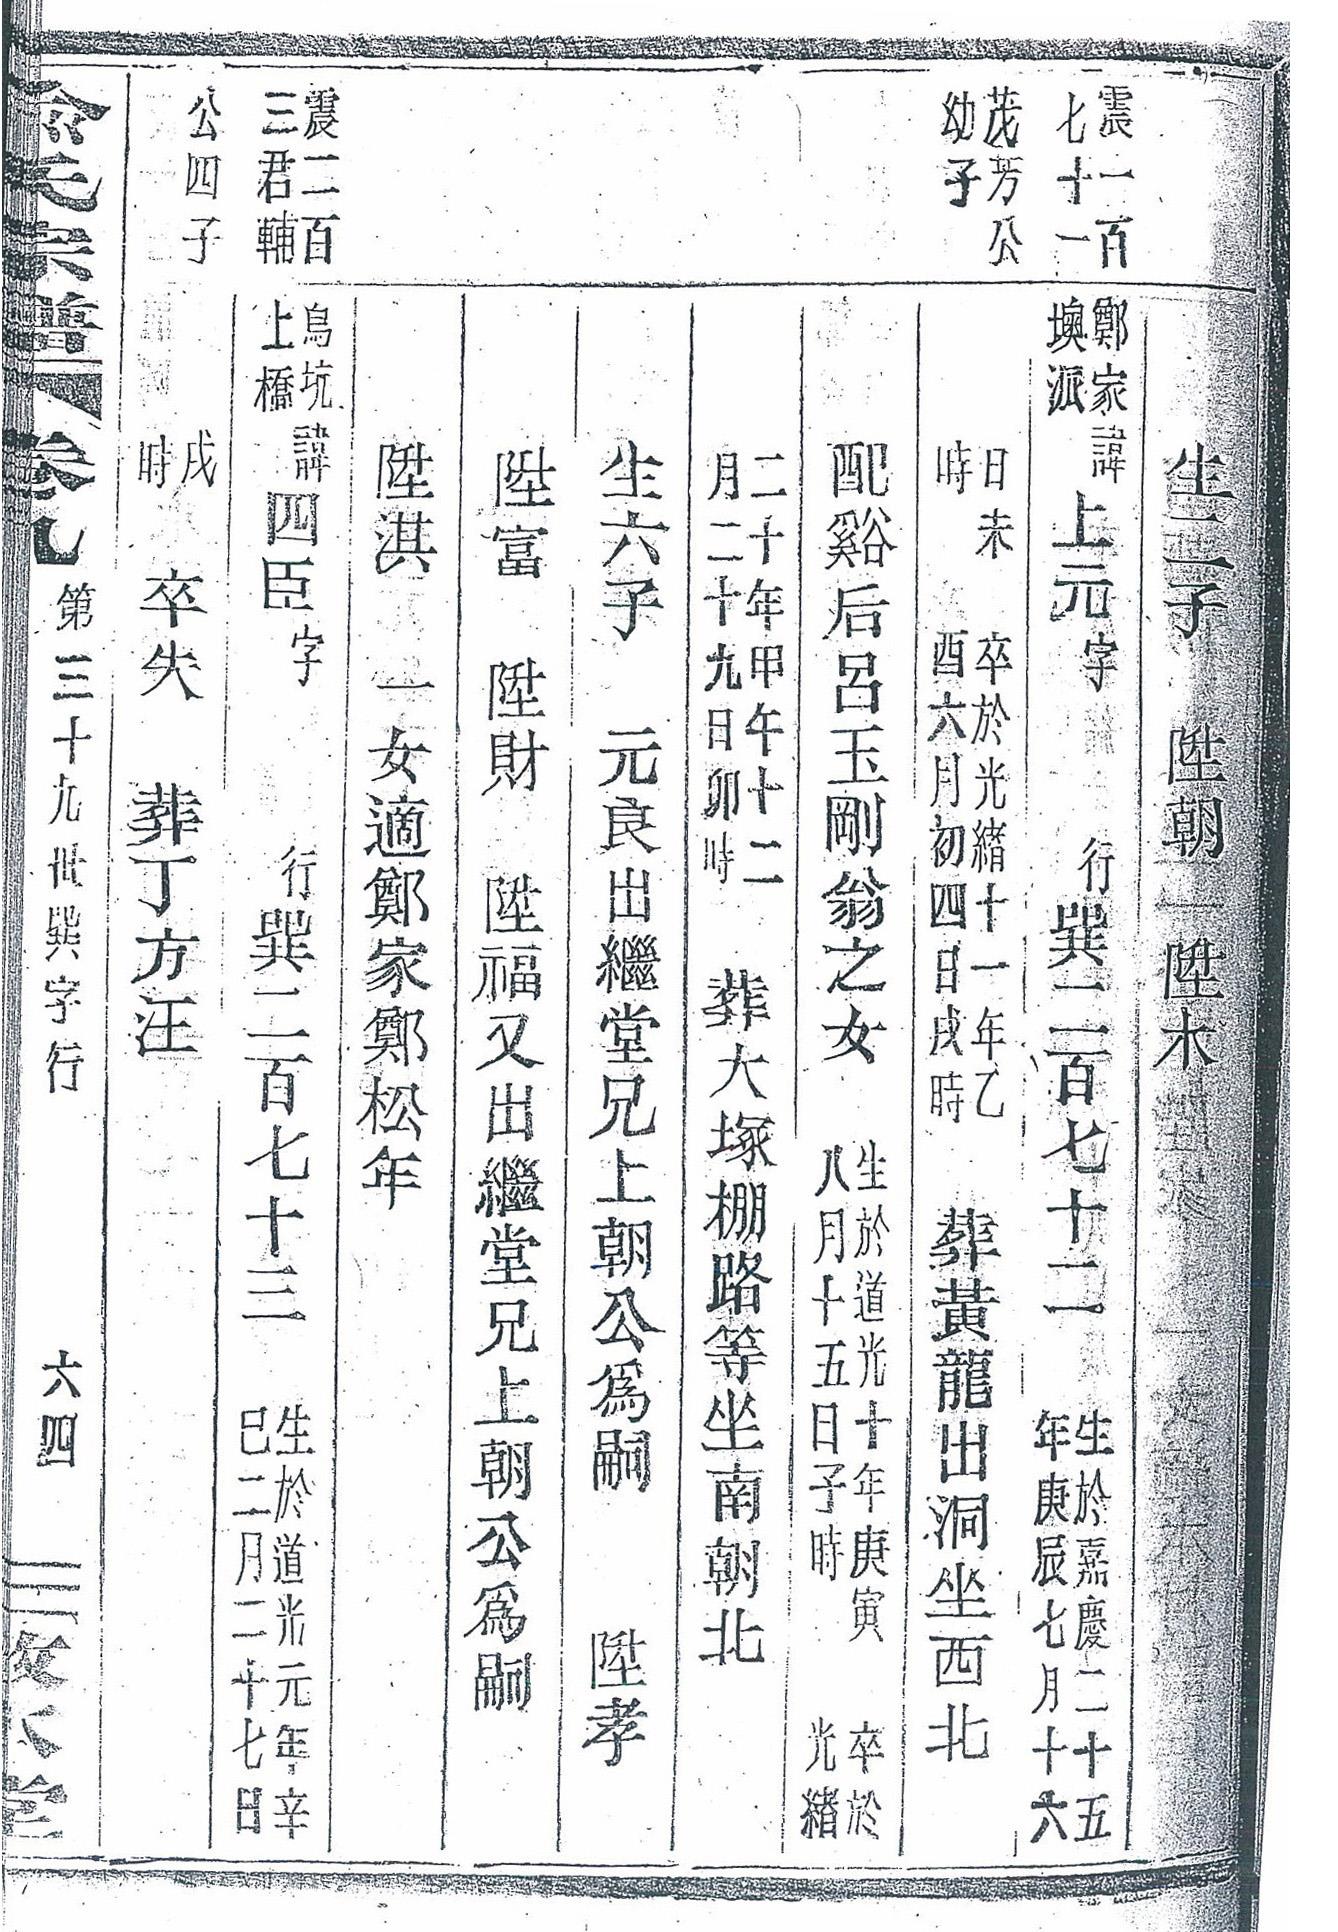 生二子　陞朝　陞木
震一百
七十一
鄭家
墺派
諱上元字　行巽二百七十二　生於嘉慶二十五
年庚辰七月十六
茂芳公
幼子
日未
時
卒於光緒十一年乙
酉六月初四日戌時
葬黃龍出洞坐西北
配谿后呂玉剛翁之女　生於道光十年庚寅
八月十五日子時
卒於
光緒
二十年甲午十二
月二十九日卯時
葬大塚棚路等坐南朝北
生六子　元良出繼堂兄上朝公爲嗣　陞孝
陞富　陞財　陞福又出繼堂兄上朝公爲嗣
陞淇　一女適鄭家鄭松年
震二百
三君輔
烏坑
上橋
諱四臣字　行巽二百七十三　生於道光元年辛
巳二月二十七日
公四子
戌
時
卒失　葬丁方汪
俞氏宗譜　卷九　第三十九世巽字行　六四　堂